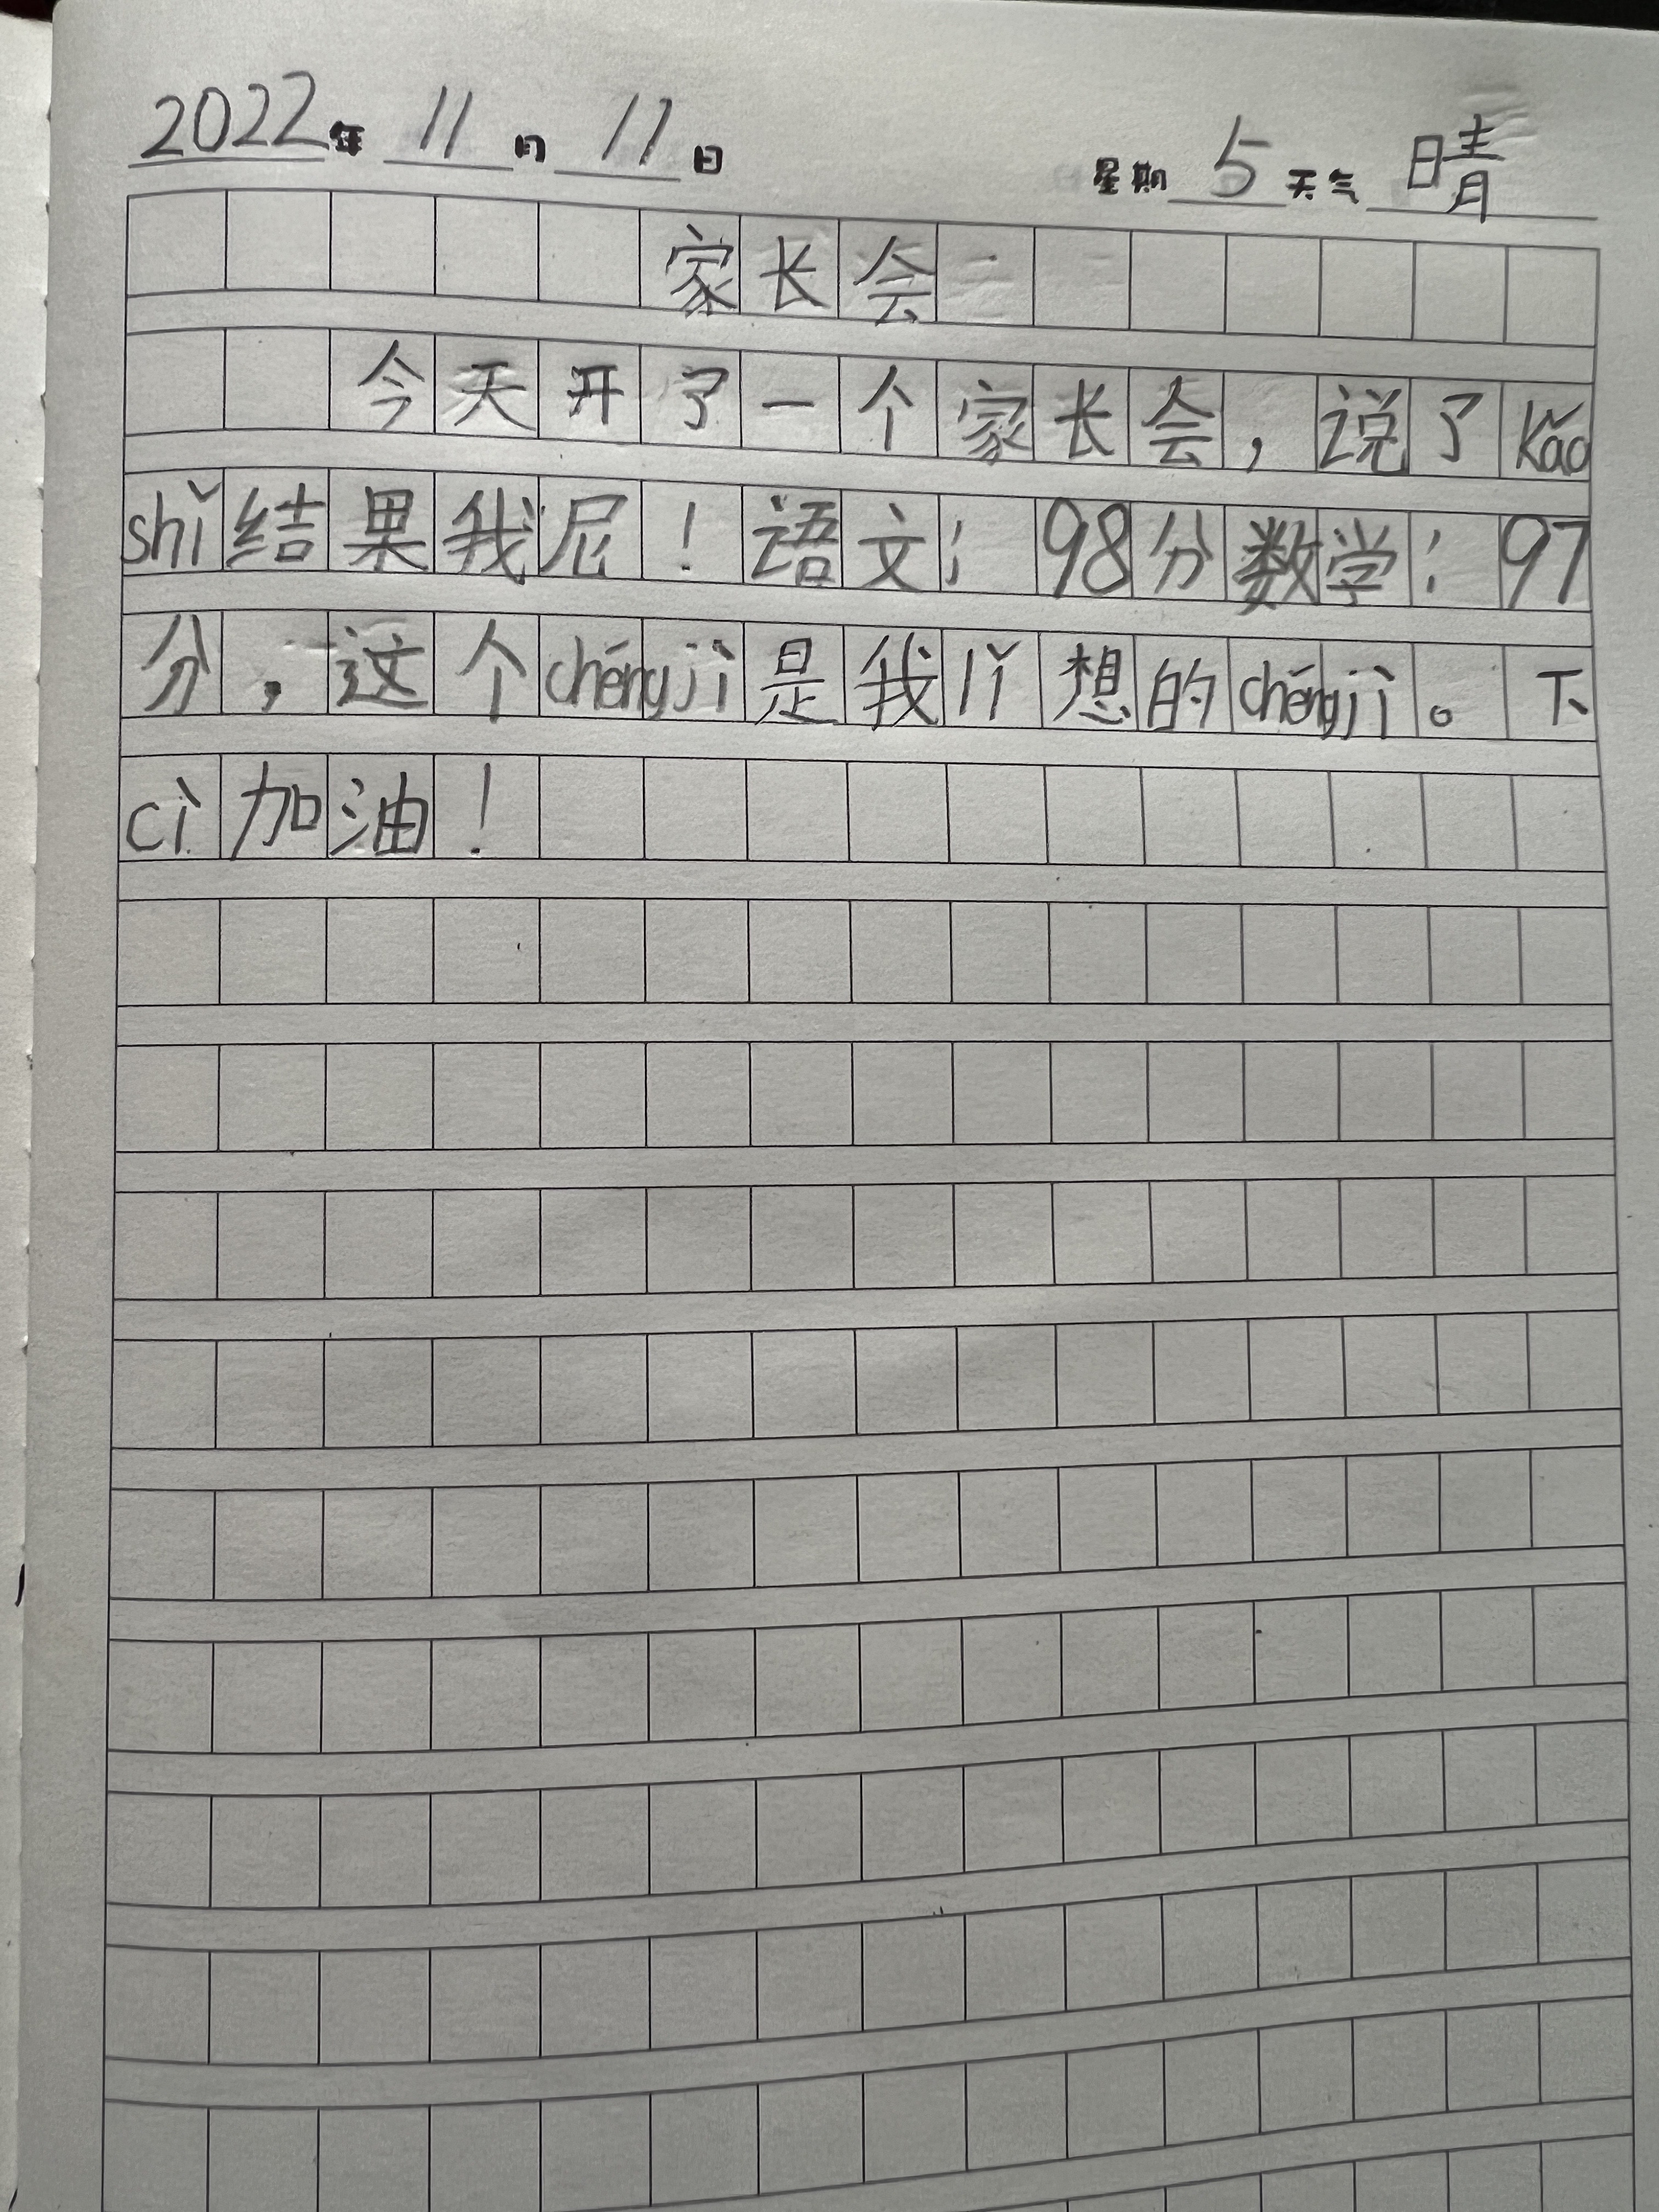 2022年 11月 11日 星期 5 天气 晴
家长会
今天开了一个家长会，说了kǎo
shǐ结果我尼！语文：98分数学：97
分，这个chéngjì是我lǐ想的chéngjì。下
cì加油！